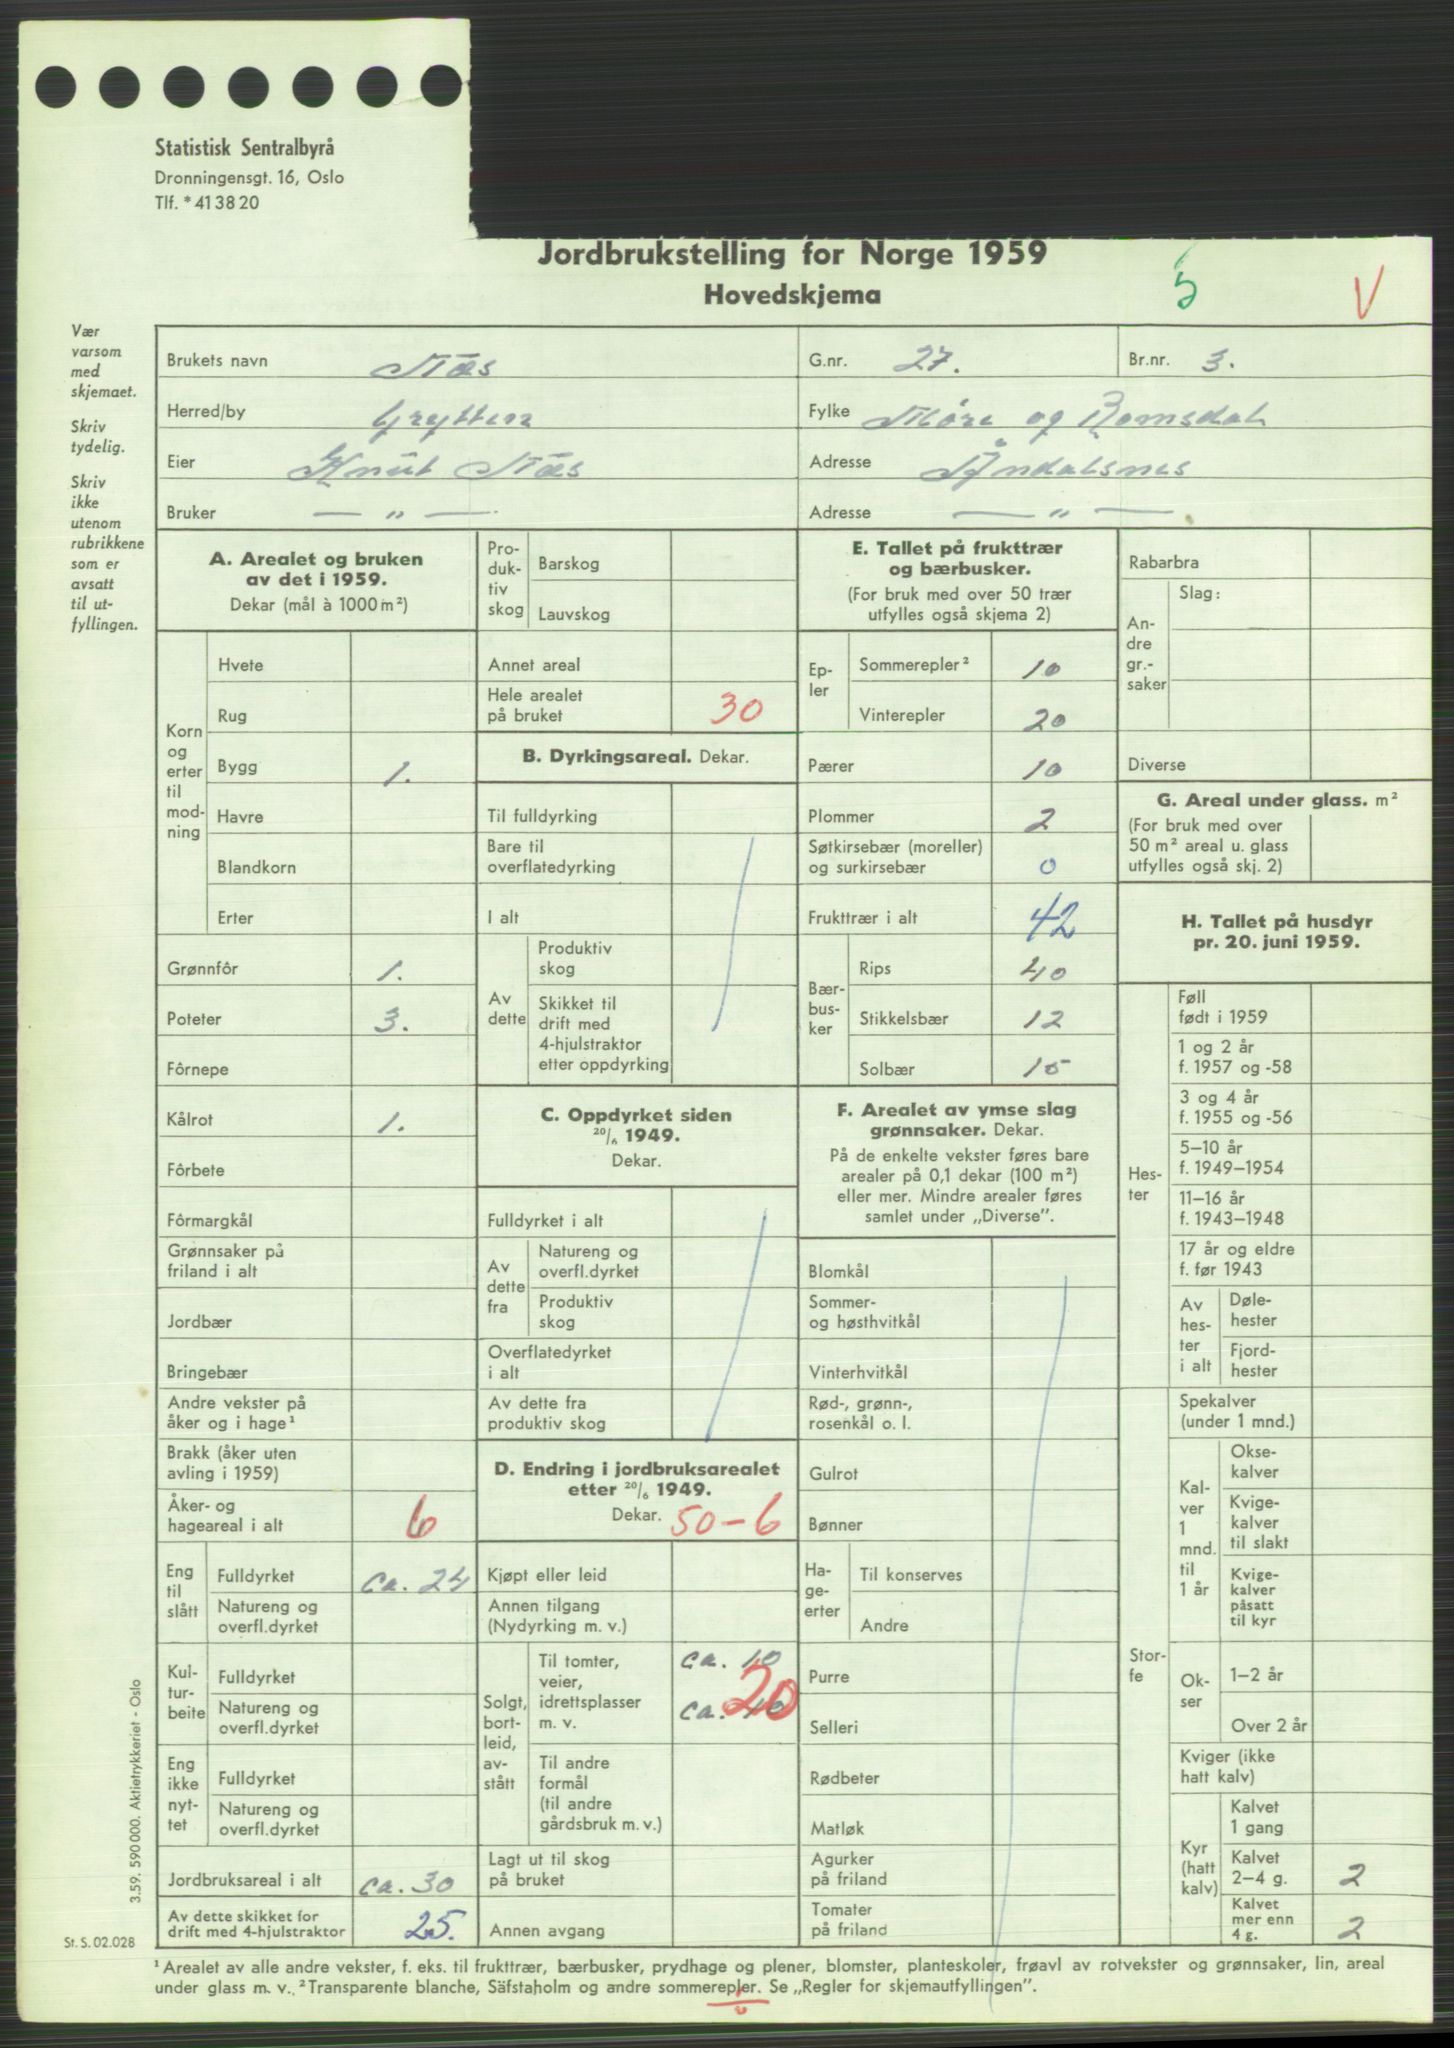 Statistisk Sentralbyrå
Dronningensgt. 16, Oslo
Tlf. * 41 38 20
Jordbrukstelling for Norge 1959
Hovedskjema
5
V
Vær
varsom
med
skjemaet.
Skriv
tydelig.
Skriv
ikke
utenom
rubrikkene
som er
avsatt
til ut-
fyllingen.
Brukets navn Næs
G.nr. 27.
Br.nr. 3.
Herred/by Grytten
Fylke Møre og Romsdal
Eier Knut Næs
Adresse Åndalsnes
Bruker — „ —
Adresse — „ —
A. Arealet og bruken
av det i 1959.
Dekar (mål à 1000 m²)
Korn
og
erter
til
mod-
ning
Hvete
Rug
Bygg 1.
Havre
Blandkorn
Erter
Grønnfôr 1.
Poteter 3.
Fôrnepe
Kålrot 1.
Fôrbete
Fôrmargkål
Grønnsaker på
friland i alt
Jordbær
Bringebær
Andre vekster på
åker og i hage¹
Brakk (åker uten
avling i 1959)
Åker- og
hageareal i alt 6
Eng
til
slått
Fulldyrket ca. 24
Natureng og
overfl.dyrket
Kul-
tur-
beite
Fulldyrket
Natureng og
overfl.dyrket
Eng
ikke
nyt-
tet
Fulldyrket
Natureng og
overfl.dyrket
Jordbruksareal i alt ca. 30
Av dette skikket for
drift med 4-hjulstraktor 25.
Pro-
duk-
tiv
skog
Barskog
Lauvskog
Annet areal
Hele arealet
på bruket 30
B. Dyrkingsareal. Dekar.
Til fulldyrking
Bare til
overflatedyrking
I alt
Av
dette
Produktiv
skog
Skikket til
drift med
4-hjulstraktor
etter oppdyrking
C. Oppdyrket siden
20/6 1949.
Dekar.
Fulldyrket i alt
Av
dette
fra
Natureng og
overfl.dyrket
Produktiv
skog
Overflatedyrket
i alt
Av dette fra
produktiv skog
D. Endring i jordbruksarealet
etter 20/6 1949.
Dekar. 50-6
Kjøpt eller leid
Annen tilgang
(Nydyrking m. v.)
Solgt,
bort-
leid,
av-
stått
Til tomter,
veier,
idrettsplasser
m. v.
ca. 10
20
ca. 10
Til andre
formål
(til andre
gårdsbruk m. v.)
Lagt ut til skog
på bruket
Annen avgang
E. Tallet på frukttrær
og bærbusker.
(For bruk med over 50 trær
utfylles også skjema 2)
Ep-
ler
Sommerepler² 10
Vinterepler 20
Pærer 10
Plommer 2
Søtkirsebær (moreller)
og surkirsebær 0
Frukttrær i alt 42
Bær-
bus-
ker
Rips 40
Stikkelsbær 12
Solbær 15
F. Arealet av ymse slag
grønnsaker. Dekar.
På de enkelte vekster føres bare
arealer på 0,1 dekar (100 m²)
eller mer. Mindre arealer føres
samlet under „Diverse”.
Blomkål
Sommer-
og høsthvitkål
Vinterhvitkål
Rød-, grønn-,
rosenkål o. l.
Gulrot
Bønner
Ha-
ge-
erter
Til konserves
Andre
Purre
Selleri
Rødbeter
Matløk
Agurker
på friland
Tomater
på friland
Rabarbra
An-
dre
gr.-
saker
Slag:
Diverse
G. Areal under glass. m²
(For bruk med over
50 m² areal u. glass
utfylles også skj. 2)
H. Tallet på husdyr
pr. 20. juni 1959.
Hes-
ter
Føll
født i 1959
1 og 2 år
f. 1957 og -58
3 og 4 år
f. 1955 og -56
5–10 år
f. 1949–1954
11–16 år
f. 1943–1948
17 år og eldre
f. før 1943
Av
hes-
ter
i alt
Døle-
hester
Fjord-
hester
Stor-
fe
Spekalver
(under 1 mnd.)
Kal-
ver
1
mnd.
til
1 år
Okse-
kalver
Kvige-
kalver
til slakt
Kvige-
kalver
påsatt
til kyr
Ok-
ser
1–2 år
Over 2 år
Kviger (ikke
hatt kalv)
Kyr
(hatt
kalv)
Kalvet
1 gang
Kalvet
2–4 g. 2
Kalvet
mer enn
4 g. 2
3.59. 590 000. Aktietrykkeriet - Oslo
St. S. 02.028
¹ Arealet av alle andre vekster, f. eks. til frukttrær, bærbusker, prydhage og plener, blomster, planteskoler, frøavl av rotvekster og grønnsaker, lin, areal
under glass m. v. ² Transparente blanche, Säfstaholm og andre sommerepler. Se „Regler for skjemautfyllingen”.